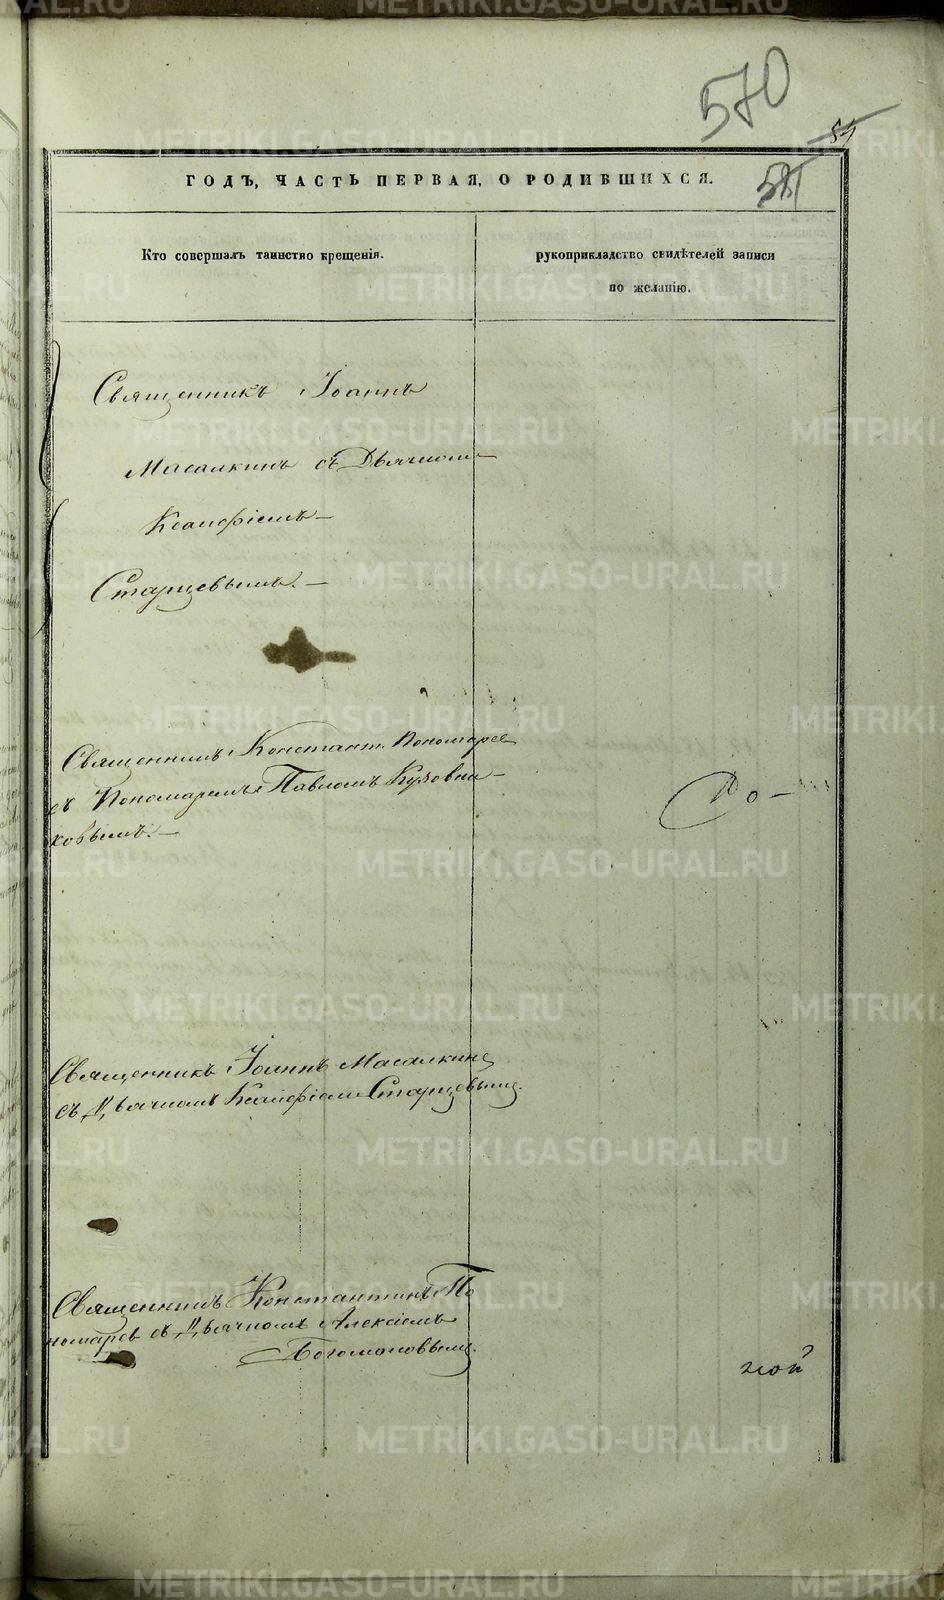 570
54
ГОДЪ, ЧАСТЬ ПЕРВАЯ, О РОДИВШИХСЯ.
Кто совершалъ таинство крещенія.
рукоприкладство свидѣтелей записи
по желанію.
Священникъ Іоаннъ
Масалкинъ съ Дьячкомъ
Ксанфіемъ
Старцевымъ.
Священникъ Констант. Пономарев
съ Пономаремъ Павломъ Кузовни-
ковымъ.
Священникъ Іоаннъ Масалкинъ
съ Дьячкомъ Ксанфіемъ Старцевымъ.
Священникъ Константинъ По
номарев съ Дьячкомъ Алексіемъ
Богомоловымъ.
METRIKI.GASO-URAL.RU